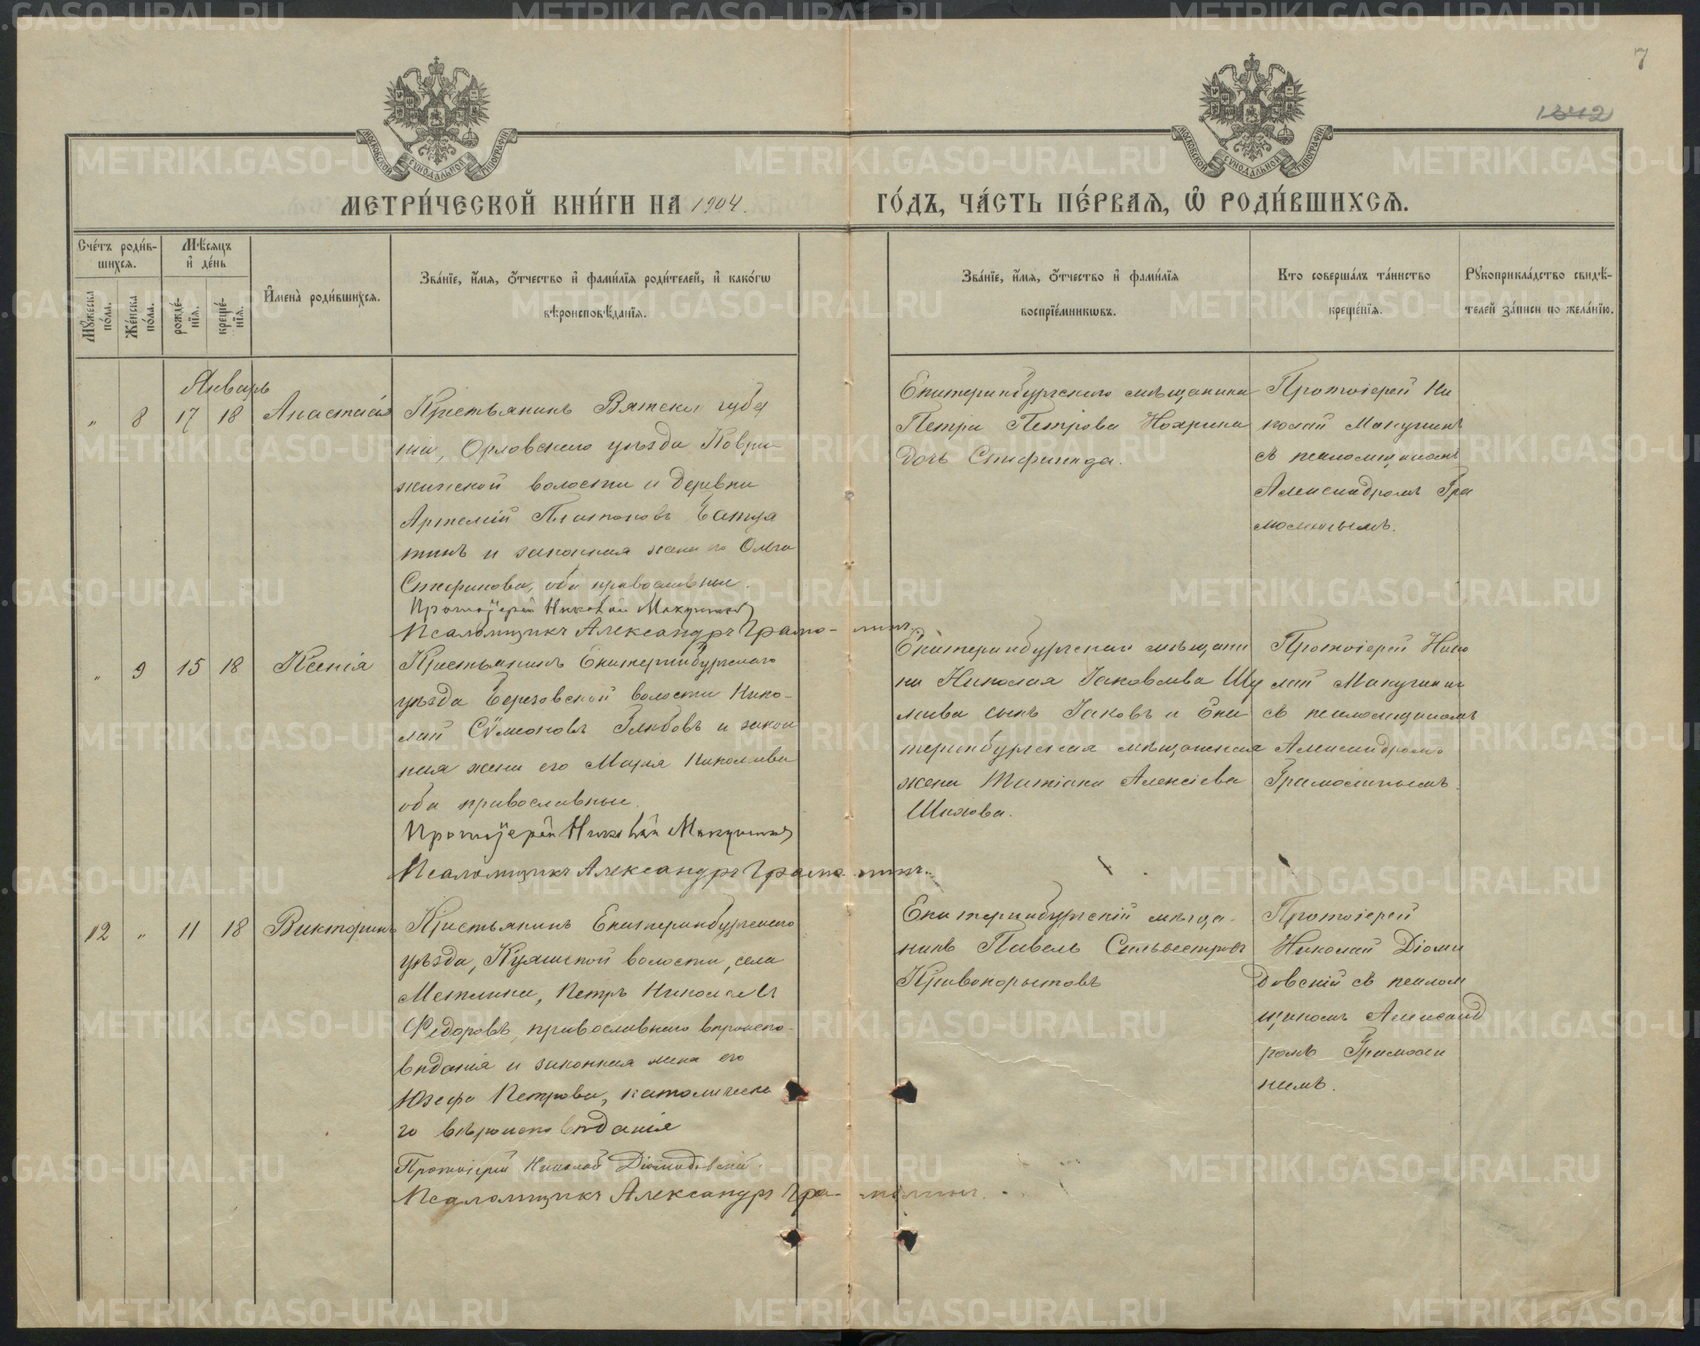 7
1342
МЕТРИ́ЧЕСКОЙ КНИ́ГИ НА 1904.
ГО́ДЪ, ЧА́СТЬ ПЕ́РВАѦ, Ѡ҆ РОДИ́ВШИХСѦ.
Сче́тъ роди́в-
шихсѧ.
Мѣ́сѧцъ
и҆ де́нь
Мꙋ́жеска
по́ла.
Же́нска
по́ла.
рожде́-
нїѧ.
креще́-
нїѧ.
И҆мена̀ роди́вшихсѧ.
Зва́нїе, и҆́мѧ, ѻ҆́тчество и҆ фами́лїѧ роди́телей, и҆ како́гѡ
вѣроисповѣ́данїѧ.
Зва́нїе, и҆́мѧ, ѻ҆́тчество и҆ фами́лїѧ
воспрїе́мникѡвъ.
Кто̀ соверша́лъ та́инство
креще́нїѧ.
Рꙋкоприкла́дство свидѣ́-
телей за́писи по жела́нїю.
Январь
„ 8 17 18 Анастасія
Крестьянинъ Вятской губер
ніи, Орловскаго уѣзда Коври-
жинской волости и деревни
Артемій Платоновъ
и законная жена его Ольга
Стефанова, оба православные.
Протоіерей Николай Макушинъ
Псаломщикъ Александръ Грамо-линъ.
Екатеринбургскаго мѣщанина
Петра Петрова Нохрина
дочь Стефанида.
Протоіерей Ни
колай Макушинъ
съ псаломщикомъ
Александромъ Гра
молинымъ.
„ 9 15 18 Ксенія
Крестьянинъ Екатеринбургскаго
уѣзда Березовской волости Нико-
лай Сѵмеоновъ Глѣбовъ и закон
ная жена его Марія Николаева
оба православные.
Протоіерей Николай Макушинъ
Псаломщикъ Александръ Грамо-линъ.
Екатеринбургскаго мѣщани
на Николая Іаковлева Шу
сынъ Іаковъ и Ека
теринбургская мѣщанская
жена Татіана Алексіева
Протоіерей Нико
лай Макушинъ
съ псаломщикомъ
Александромъ
Грамолинымъ.
12 „ 11 18 Викторинъ
Крестьянинъ Екатеринбургскаго
уѣзда, Куяшской волости, села
Метлина, Петръ Николаевъ
Федоровъ, православнаго вѣроиспо-
вѣданія и законная жена его
Юзефа Петрова, католическа
го вѣроисповѣданія
Протоіерей Николай Діомидовскій.
Псаломщикъ Александръ Гра-молинъ.
Екатеринбургскій мѣща-
нинъ Павелъ Сильвестровъ
Кривокорытовъ
Протоіерей
Николай Діоми
довскій съ псалом
щикомъ Александ
ромъ Грамоли
нымъ.
METRIKI.GASO-URAL.RU